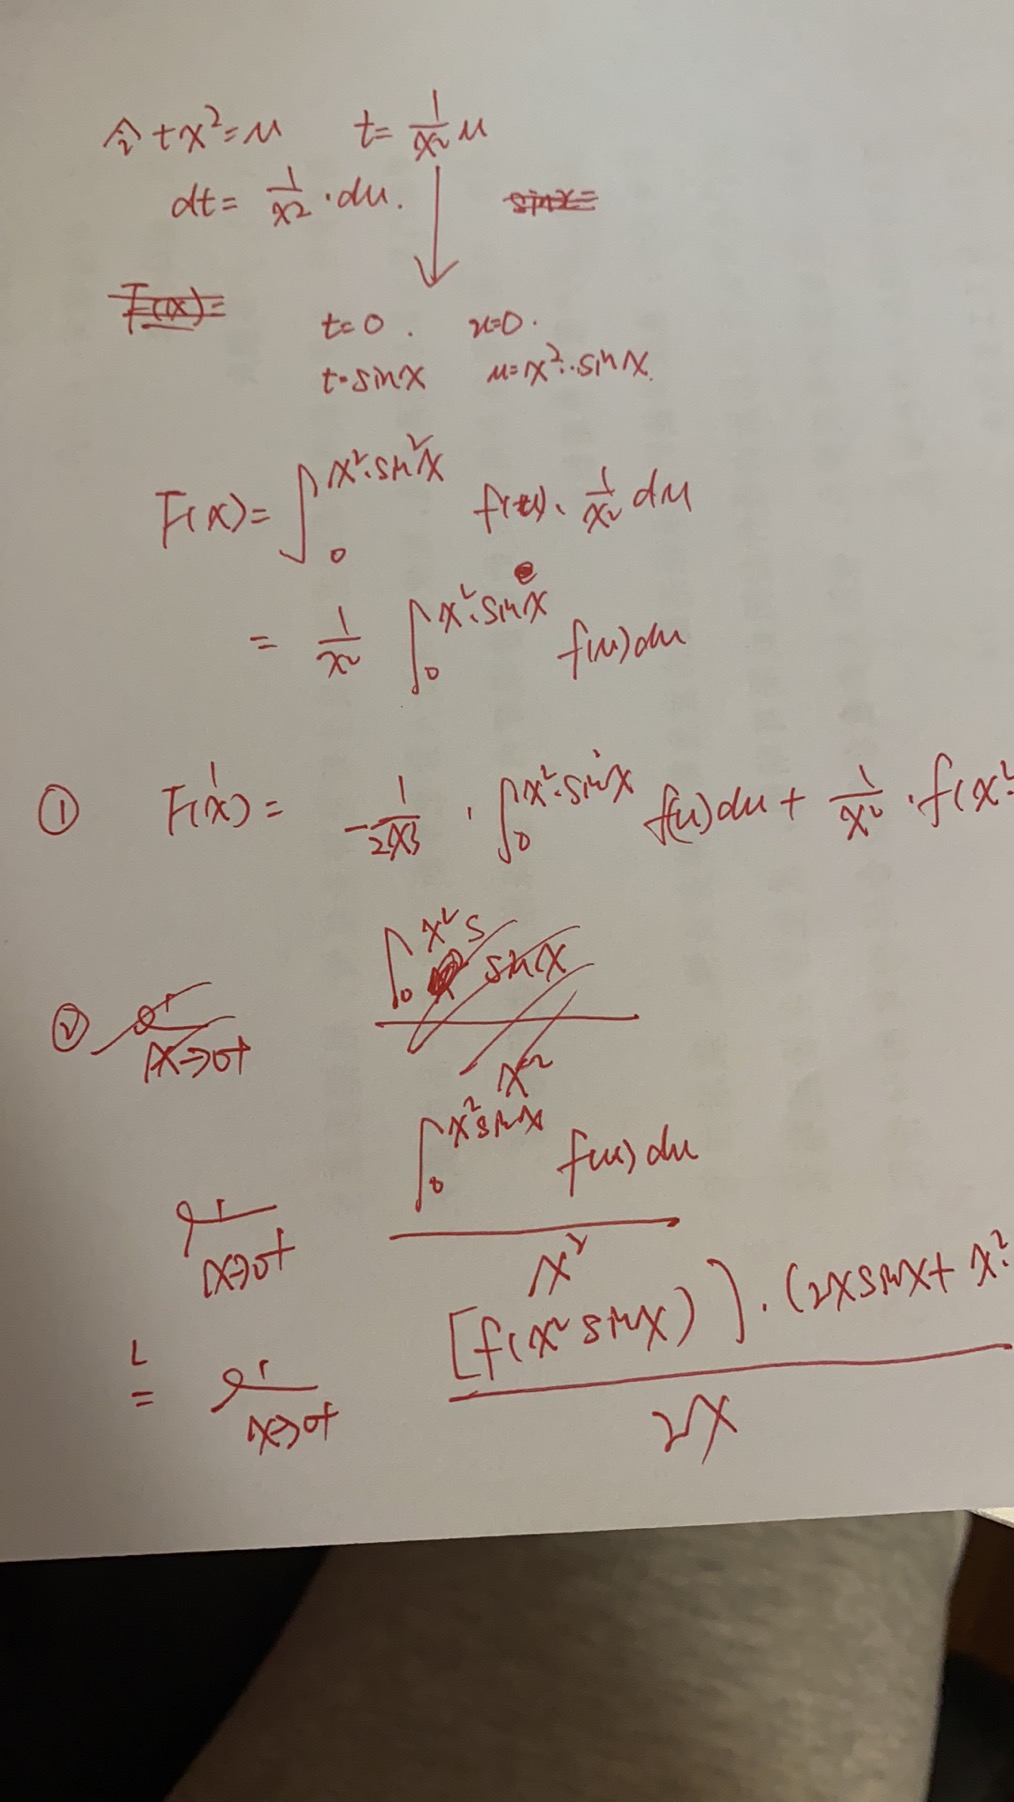 令 tx²=u t=\frac{1}{x²}u
dt=\frac{1}{x²}·du.
t=0. u=0.
t=sinx u=x²·sinx.
F(x)=∫_0^{x²·sin²x} f(u)·\frac{1}{x²}du
=\frac{1}{x²}∫_0^{x²·sinx} f(u)du
① F'(x)=-\frac{1}{2x³}·∫_0^{x²·sinx} f(u)du+\frac{1}{x²}·f(x²·
②
x→0+
lim_{x→0+} \frac{∫_0^{x²sinx} f(u)du}{x²}
\overset{L}{=} lim_{x→0+} \frac{[f(x²sinx)]·(2xsinx+x²·}{2x}